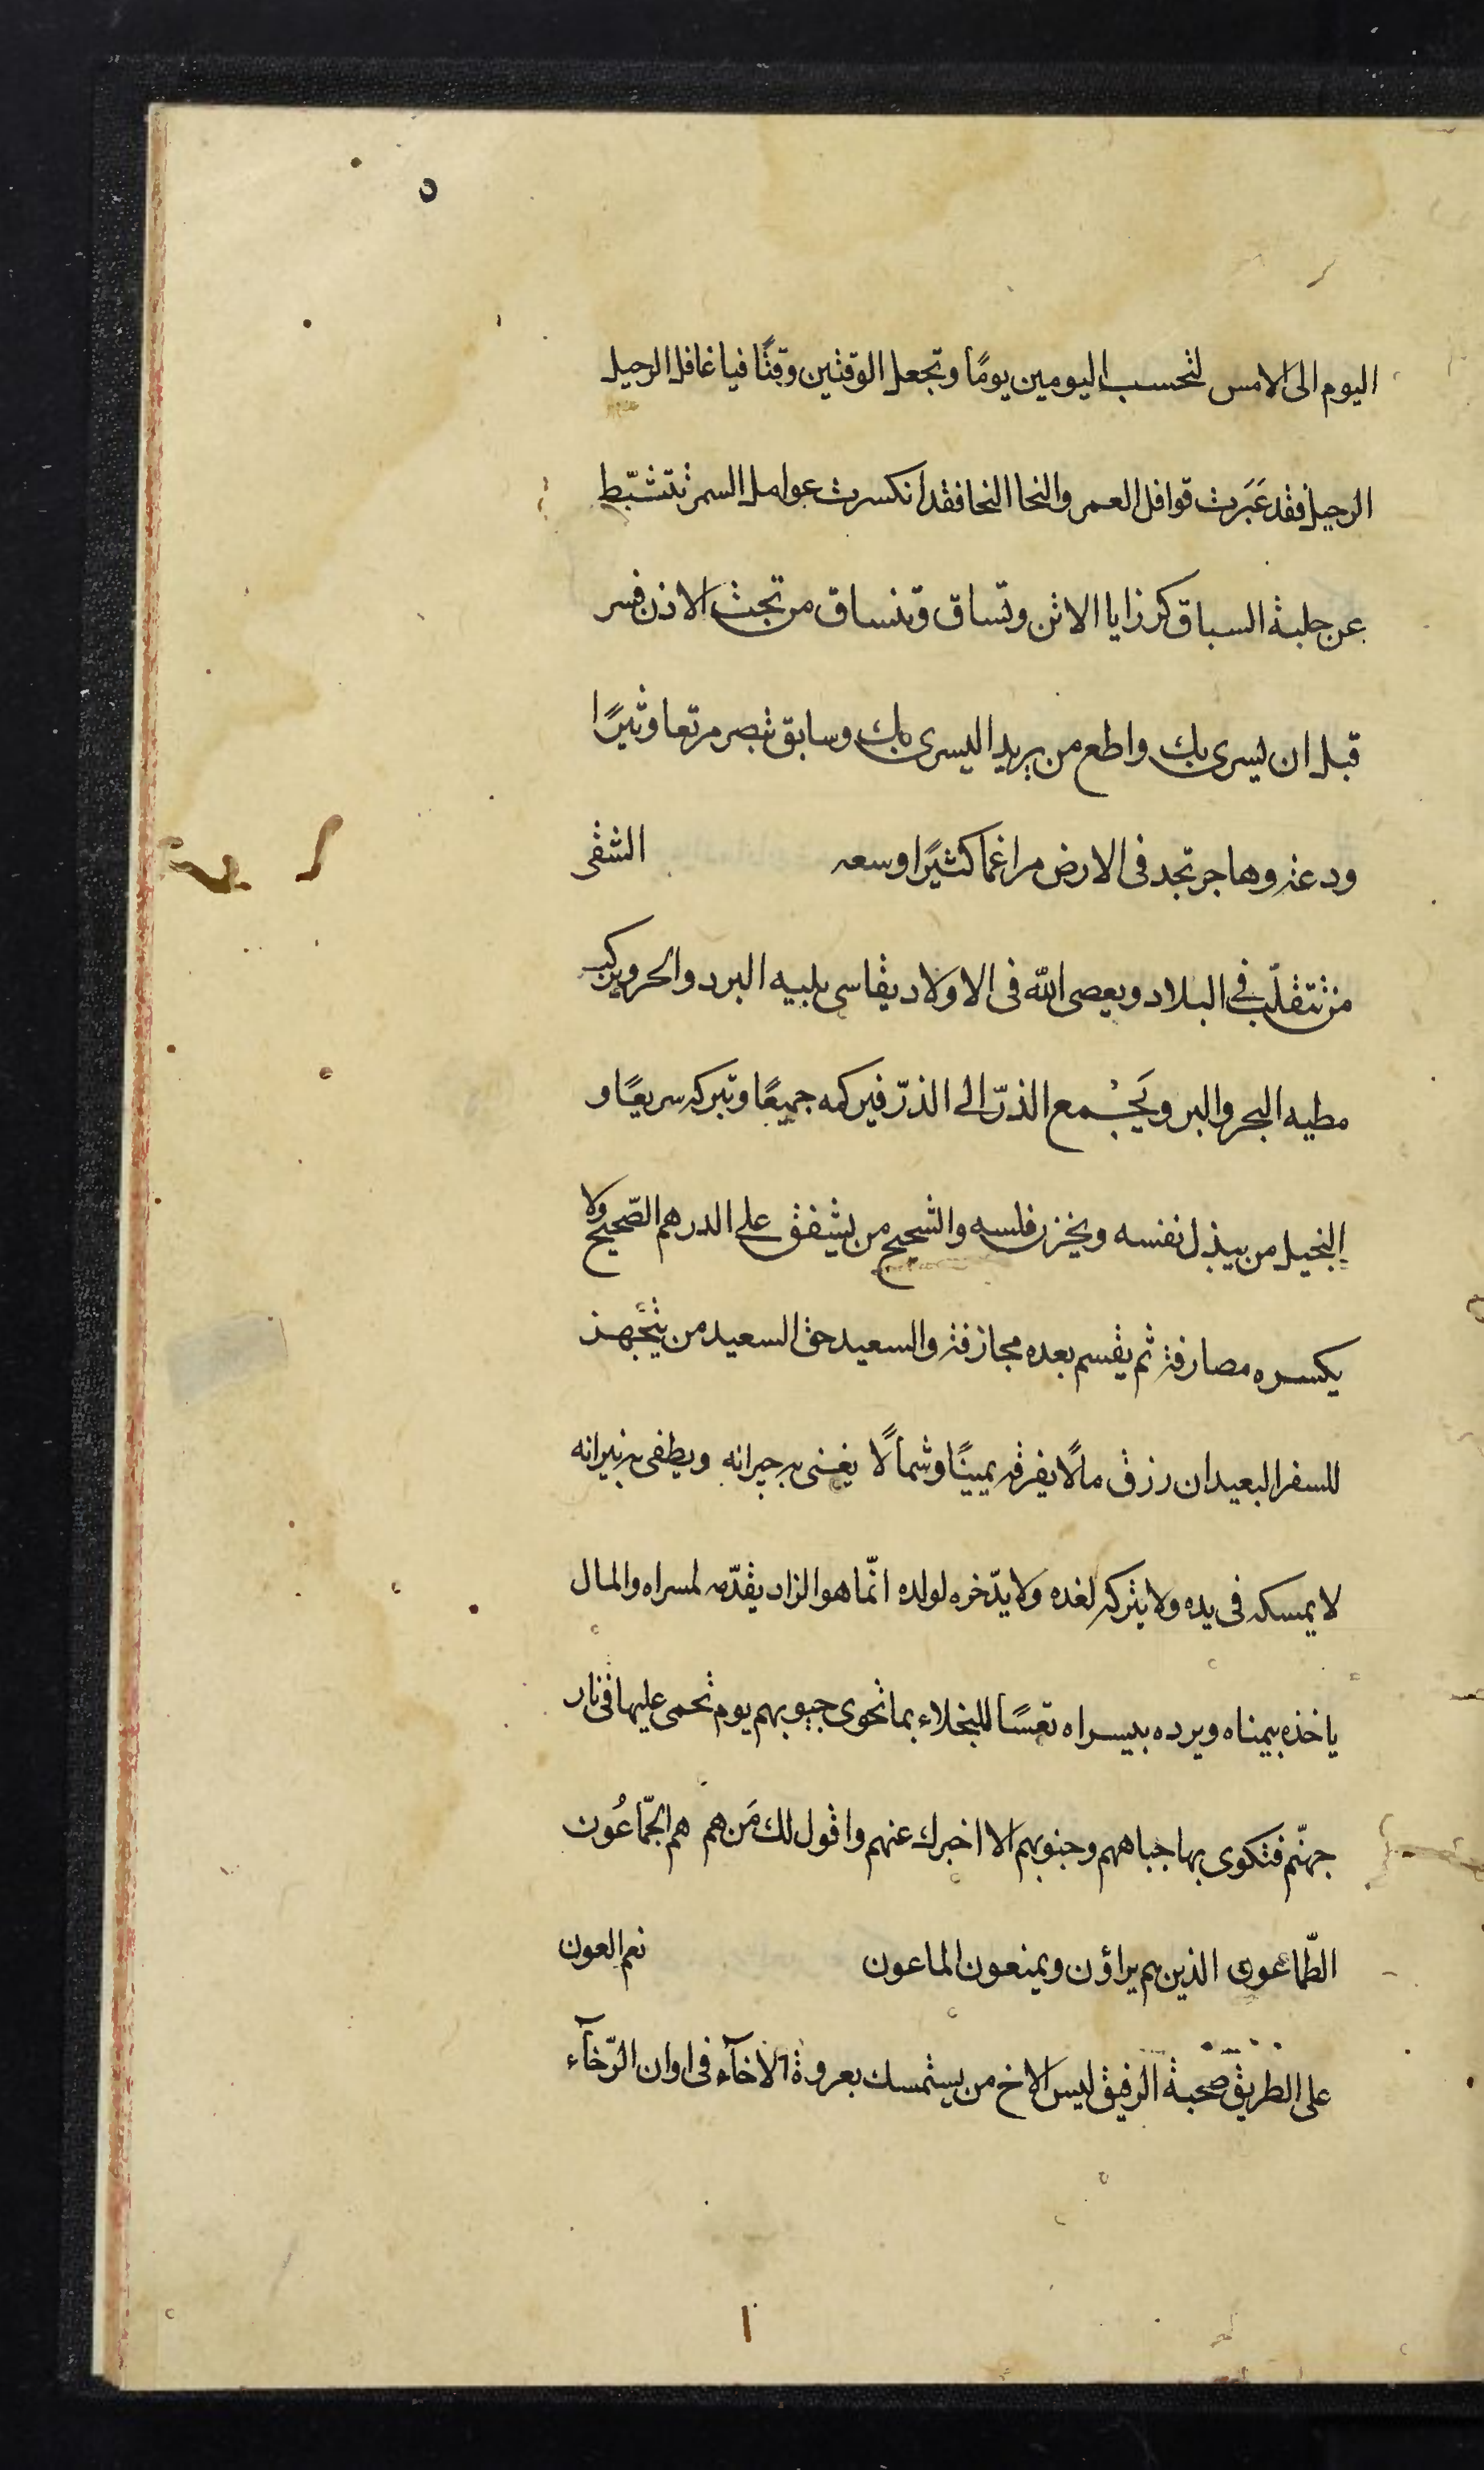 ٥
اليوم الى الامس لتحسب اليومين يومًا وتجعل الوقتين وقتًا فيا غافل الرحيل
الرحيل فقد عَبَرت قوافل العمر والنجا النجا فقد انكسرت عوامل السمر تتثبّط
عن حلبة السباق كرزايا الاتن وتساق وتنساق من تحت الاذن فسر
قبل ان يسرى بك واطع من يريد اليسرى بك وسابق تبصر مرتعا وثيرًا
ودعة وهاجر تجد فى الارض مراغما كثيرًا وسعه الشقى
من تتقلّب فى البلاد ويعصى الله فى الاولاد يقاسى بلبيه البرد والحر ويركب
مطيه البحر والبر ويَجْمع الذرّ الى الذرّ فيركمه جميعًا وتتركه سريعًا و
البخيل من يبذل نفسه ويخزن فلسه والشحيح من يشفق على الدرهم الصّحيح ولا
يكسره مصارفة ثم يقسم بعده مجازفة والسعيد حق السعيد من يتجهز
للسفر البعيد ان رزق مالًا يفرقه يمينًا وشمالًا يغنى به جيرانه ويطفى به نيرانه
لا يمسكه فى يده ولا يتركه لغده ولا يدّخره لولده انّما هو الزاد يقدّمه لمسراه والمال
ياخذه بيمناه ويرده بيسراه تعسًا للبخلاء بما تحوى جيوبهم يوم تحمى عليها فى نار
جهنّم فتكوى بها جباههم وجنوبهم الا اخبرك عنهم واقول لك مَن هم هم الجمّاعُون
الطّماعون الذين هم يراؤن ويمنعون الماعون نعم العون
على الطريق صحبة الرفيق ليس الاخ من يستمسك بعروة الاخآء فى اوان الرّخآء